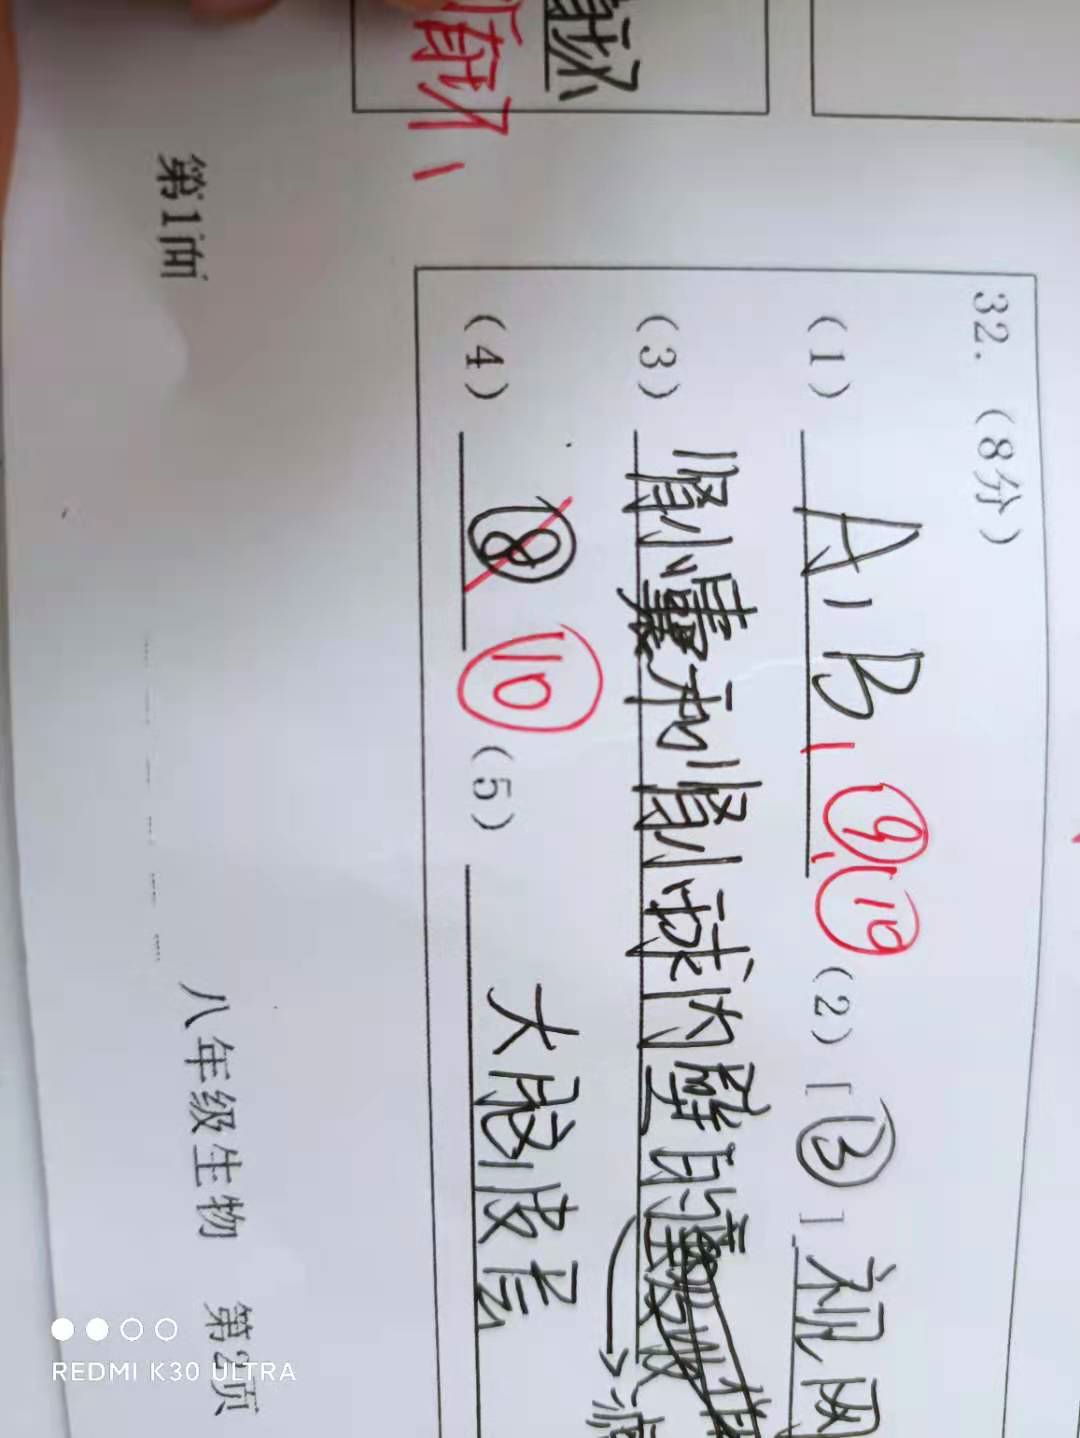 32. （8分）
（1） A，B，⑨，⑩ （2）[③]视网
（3）肾小囊和肾小球内壁的
（4） ⑧ ⑩ （5） 大脑皮层
第1面
八年级生物 第2页
REDMI K30 ULTRA